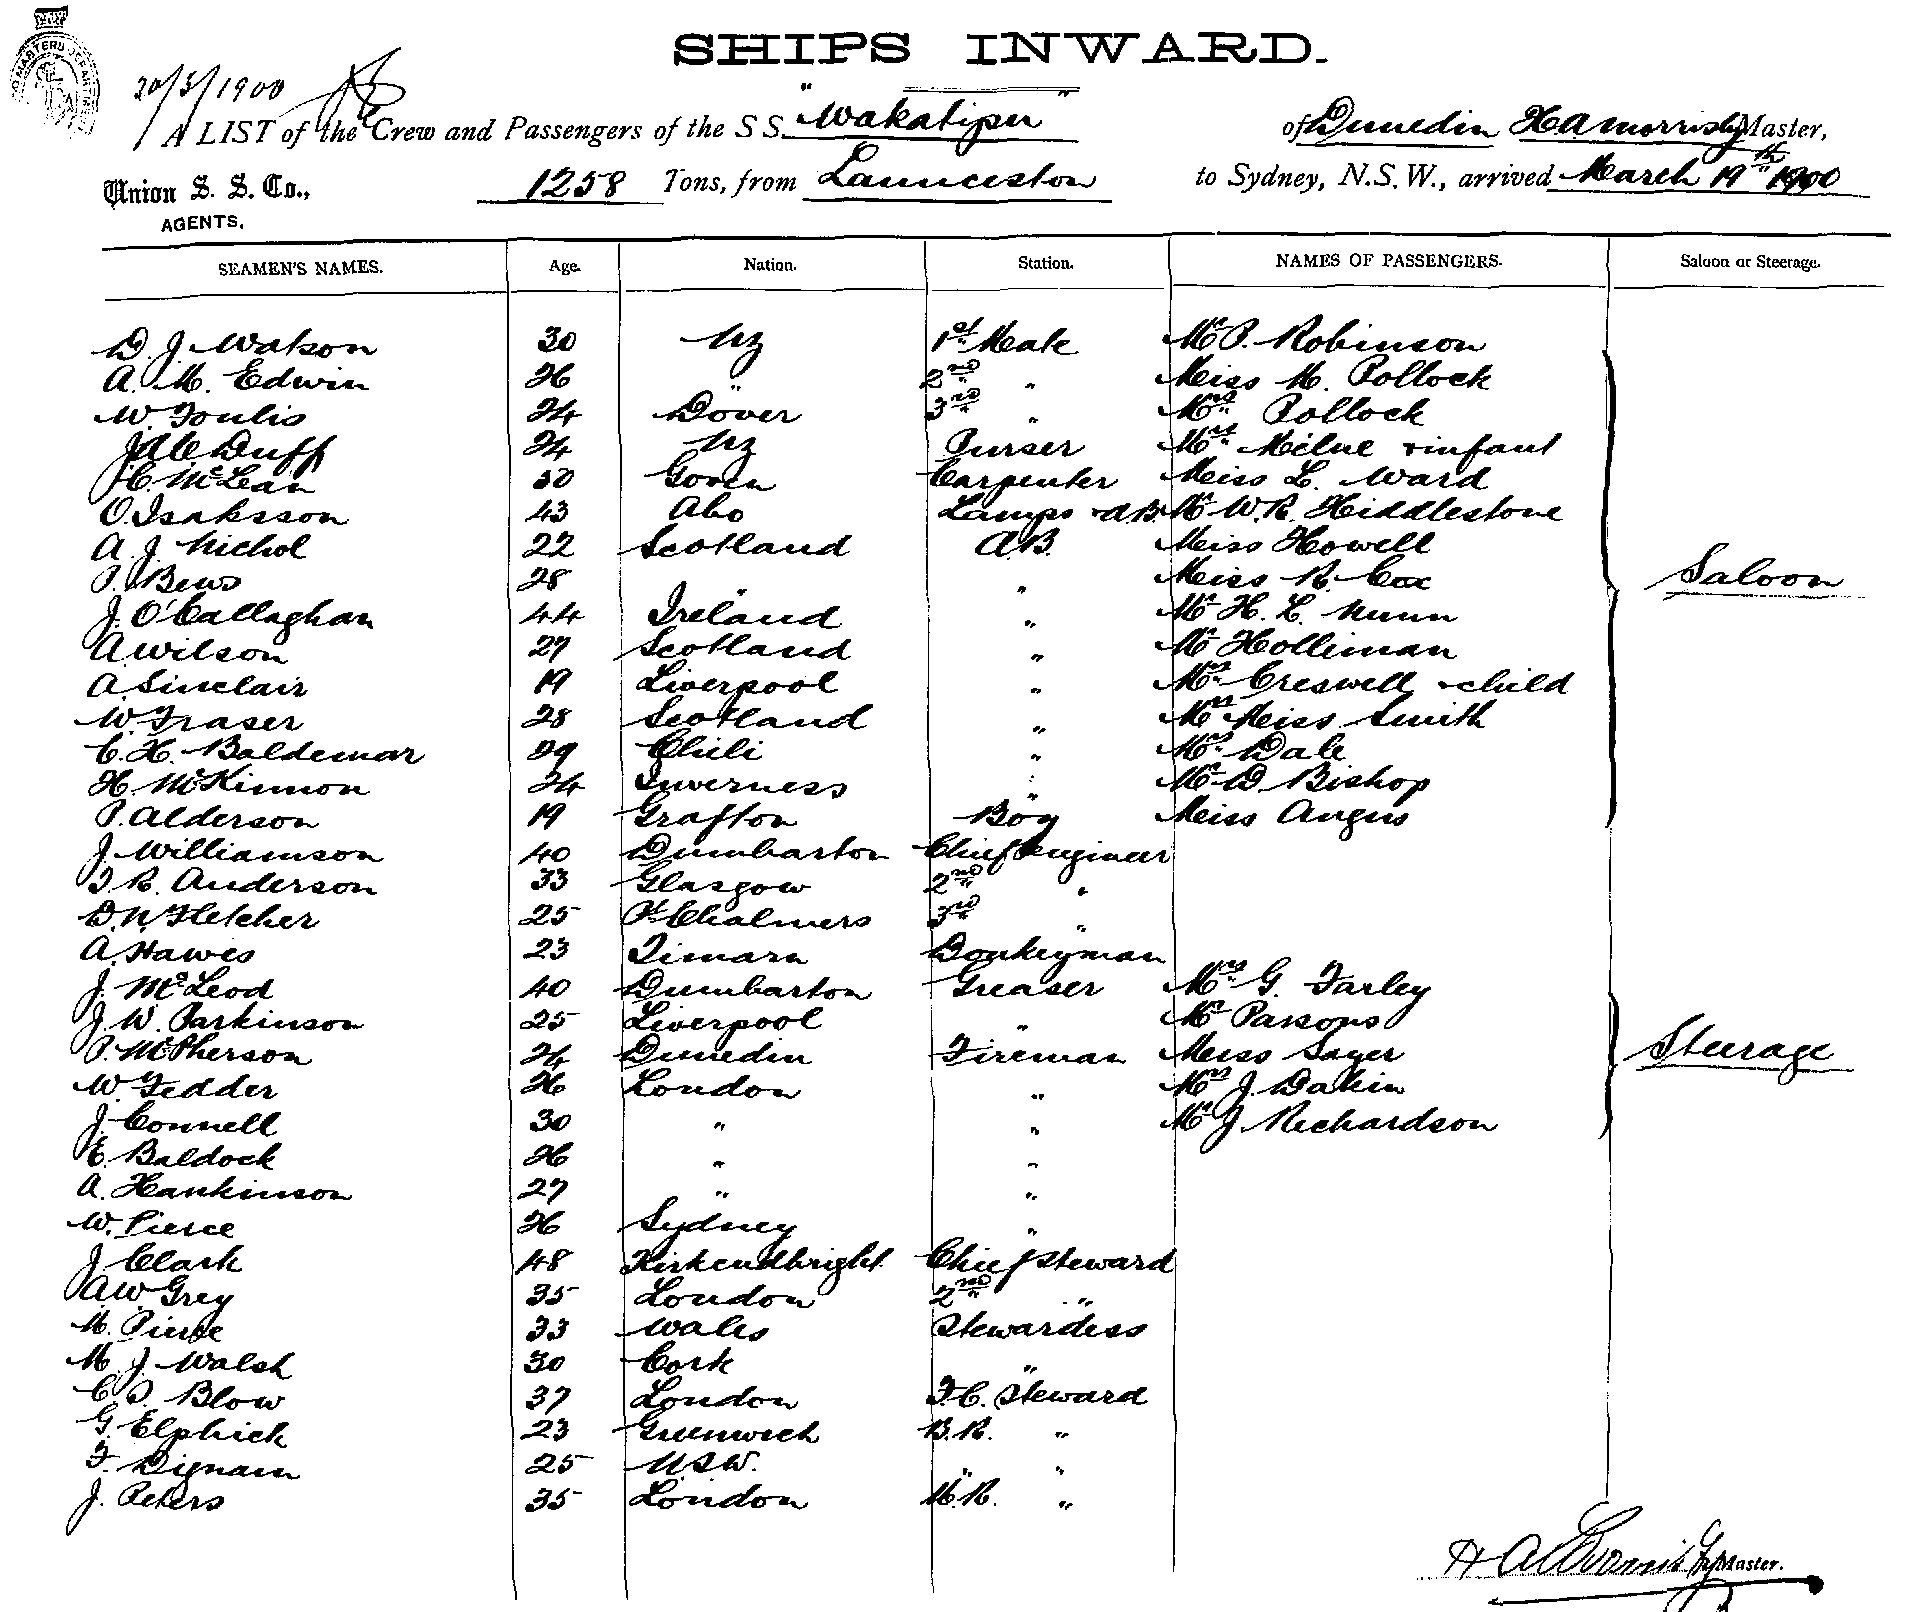 SHIPS INWARD.
20/3/1900
A LIST of the Crew and Passengers of the S S. "Wakatipu" of Dunedin H A Morrisby Master,
Union S. S. Co., 1258 Tons, from Launceston to Sydney, N.S.W., arrived March 19th 1900
AGENTS.
SEAMEN'S NAMES. Age. Nation. Station. NAMES OF PASSENGERS. Saloon or Steerage.
D. J. Watson 30 NZ 1st Mate Mr P. Robinson
A. M. Edwin 26 " 2nd " Miss M. Pollock
W. Foulis 24 Dover 3rd " Mrs Pollock
Duff 24 NZ Purser Mrs Milne & infant
H. McLean 50 Govan Carpenter Miss L. Ward
O. Isaksson 43 Abo Lamps & AB Mr W. R. Hiddlestone
A. J. Nichol 22 Scotland A.B. Miss Howell
P. Bews 28 " " Miss R. Cox Saloon
J. O'Callaghan 44 Ireland " Mr H. L. Nunn
A Wilson 27 Scotland " Mr Holliman
A. Sinclair 19 Liverpool " Mrs Creswell & child
W. Fraser 28 Scotland " Mrs Miss Smith
C. H. Baldemar 29 Chili " Mrs Dale
H. McKinnon 24 Inverness " Mr D Bishop
P. Alderson 19 Grafton Boy Miss Angus
J. Williamson 40 Dumbarton Chief Engineer
T. R. Anderson 33 Glasgow 2nd "
D. N. Fletcher 25 Pt Chalmers 3rd "
A. Hawes 23 Timaru Donkeyman
J. McLeod 40 Dumbarton Greaser Mrs G. Farley
J. W. Parkinson 25 Liverpool " Mr Parsons
P. McPherson 24 Dunedin Fireman Miss Sayer Steerage
W. Tedder 26 London " Mrs J. Dakin
J. Connell 30 " " Mr J Richardson
E. Baldock 26 " "
A. Hankinson 27 " "
W. Pierce 26 Sydney "
J Clark 48 Kirkcudbright Chief Steward
A W Grey 35 London 2nd "
M. Pierce 33 Wales Stewardess
M. J. Walsh 30 Cork "
C. P. Blow 37 London F. C. Steward
G. Elphick 23 Greenwich B. R. "
F. Dignam 25 NSW. " "
J. Peters 35 London M. R. "
H A Morrisby Master.